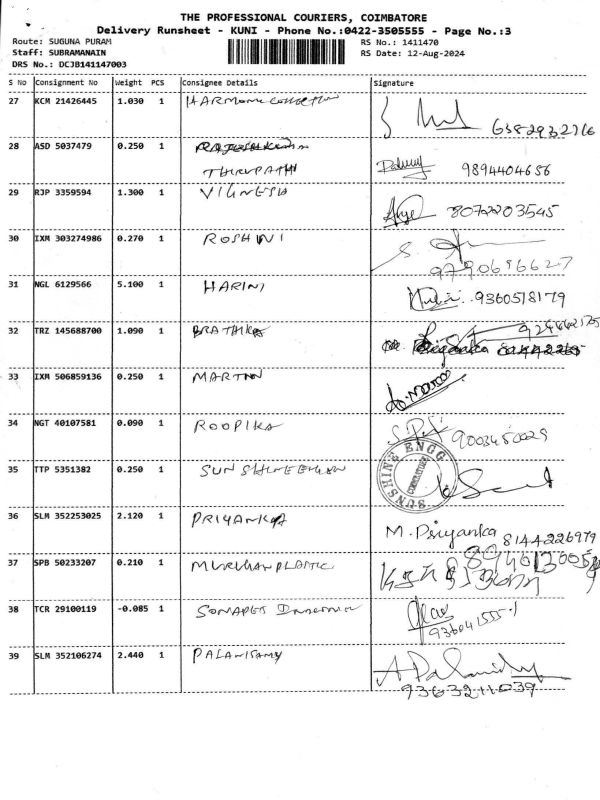 THE PROFESSIONAL COURIERS, COIMBATORE
Delivery Runsheet - KUNI - Phone No.:0422-3505555 - Page No.:3
Route: SUGUNA PURAM RS No.: 1411470
Staff: SUBRAMANAIN RS Date: 12-Aug-2024
DRS No.: DCJB141147003
S No Consignment No Weight PCS Consignee Details Signature
27 KCM 21426445 1.030 1 HARMONI
6382932716
28 ASD 5037479 0.250 1
THIRUPATHI 9894404656
29 RJP 3359594 1.300 1 VIGNESH
8072203545
30 IXM 303274986 0.270 1 ROSHNI
9790696627
31 NGL 6129566 5.100 1 HARINI
9360518179
32 TRZ 145688700 1.090 1 BRATHIKA
33 IXM 506859136 0.250 1 MARTIN
34 NGT 40107581 0.090 1 ROOPIKA
9003450029
35 TTP 5351382 0.250 1 SUNSHINE
SUNSHINE ENGG
COIMBATORE
36 SLM 352253025 2.120 1 PRIYANKA
M. Priyanka 8144226979
37 SPB 50233207 0.210 1 MURUGAN PLASTIC
38 TCR 29100119 -0.085 1
39 SLM 352106274 2.440 1 PALANISAMY
9363211039